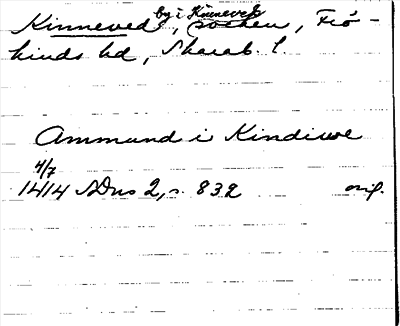 Kinneved, by i Kinneveds socken, Frö-
kinds hd, Skarab. l.
Ammund i Kindiwe
4/7
1414 SDns 2, s. 832 orig.